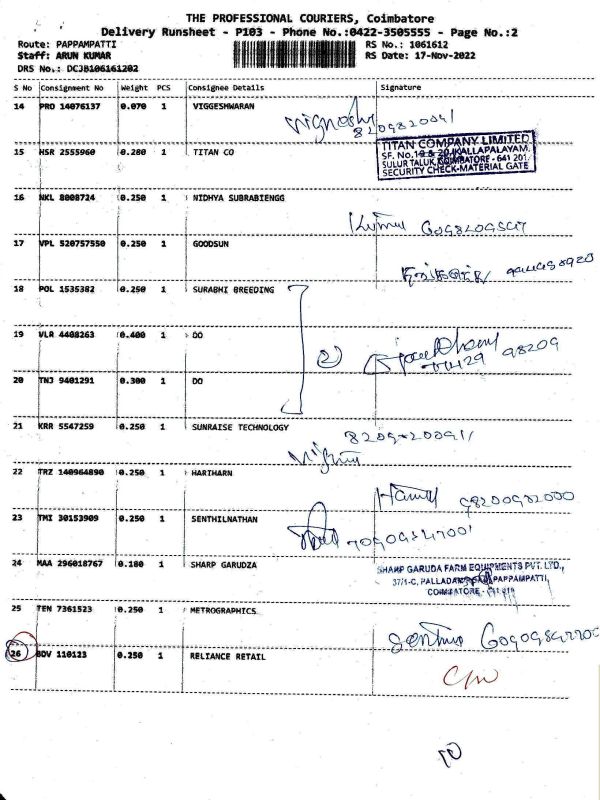 THE PROFESSIONAL COURIERS, Coimbatore
Delivery Runsheet - P103 - Phone No.:0422-3505555 - Page No.:2
Route: PAPPAMPATTI RS No.: 1061612
Staff: ARUN KUMAR RS Date: 17-Nov-2022
DRS No.: DCJB106161202
S No Consignment No Weight PCS Consignee Details Signature
14 PRD 14076137 0.070 1 VIGGESHWARAN
8209820091
15 HSR 2555960 0.280 1 TITAN CO
TITAN COMPANY LIMITED
SF. No.19 & 20, KALLAPALAYAM,
SULUR TALUK, COIMBATORE - 641 201.
SECURITY CHECK-MATERIAL GATE
16 NKL 8008724 0.250 1 NIDHYA SUBRABIENGG
Kumar
17 VPL 520757550 0.250 1 GOODSUN
18 POL 1535382 0.250 1 SURABHI BREEDING
19 VLR 4408263 0.400 1 DO
2 98209
20 TNJ 9401291 0.300 1 DO
21 KRR 5547259 0.250 1 SUNRAISE TECHNOLOGY
22 TRZ 140964890 0.250 1 HARIHARN
23 TMI 30153909 0.250 1 SENTHILNATHAN
24 MAA 296018767 0.180 1 SHARP GARUDZA
SHARP GARUDA FARM EQUIPMENTS PVT. LTD.,
37/1-C, PALLADAM PAPPAMPATTI,
COIMBATORE -
25 TEN 7361523 0.250 1 METROGRAPHICS
26 BDV 110123 0.250 1 RELIANCE RETAIL